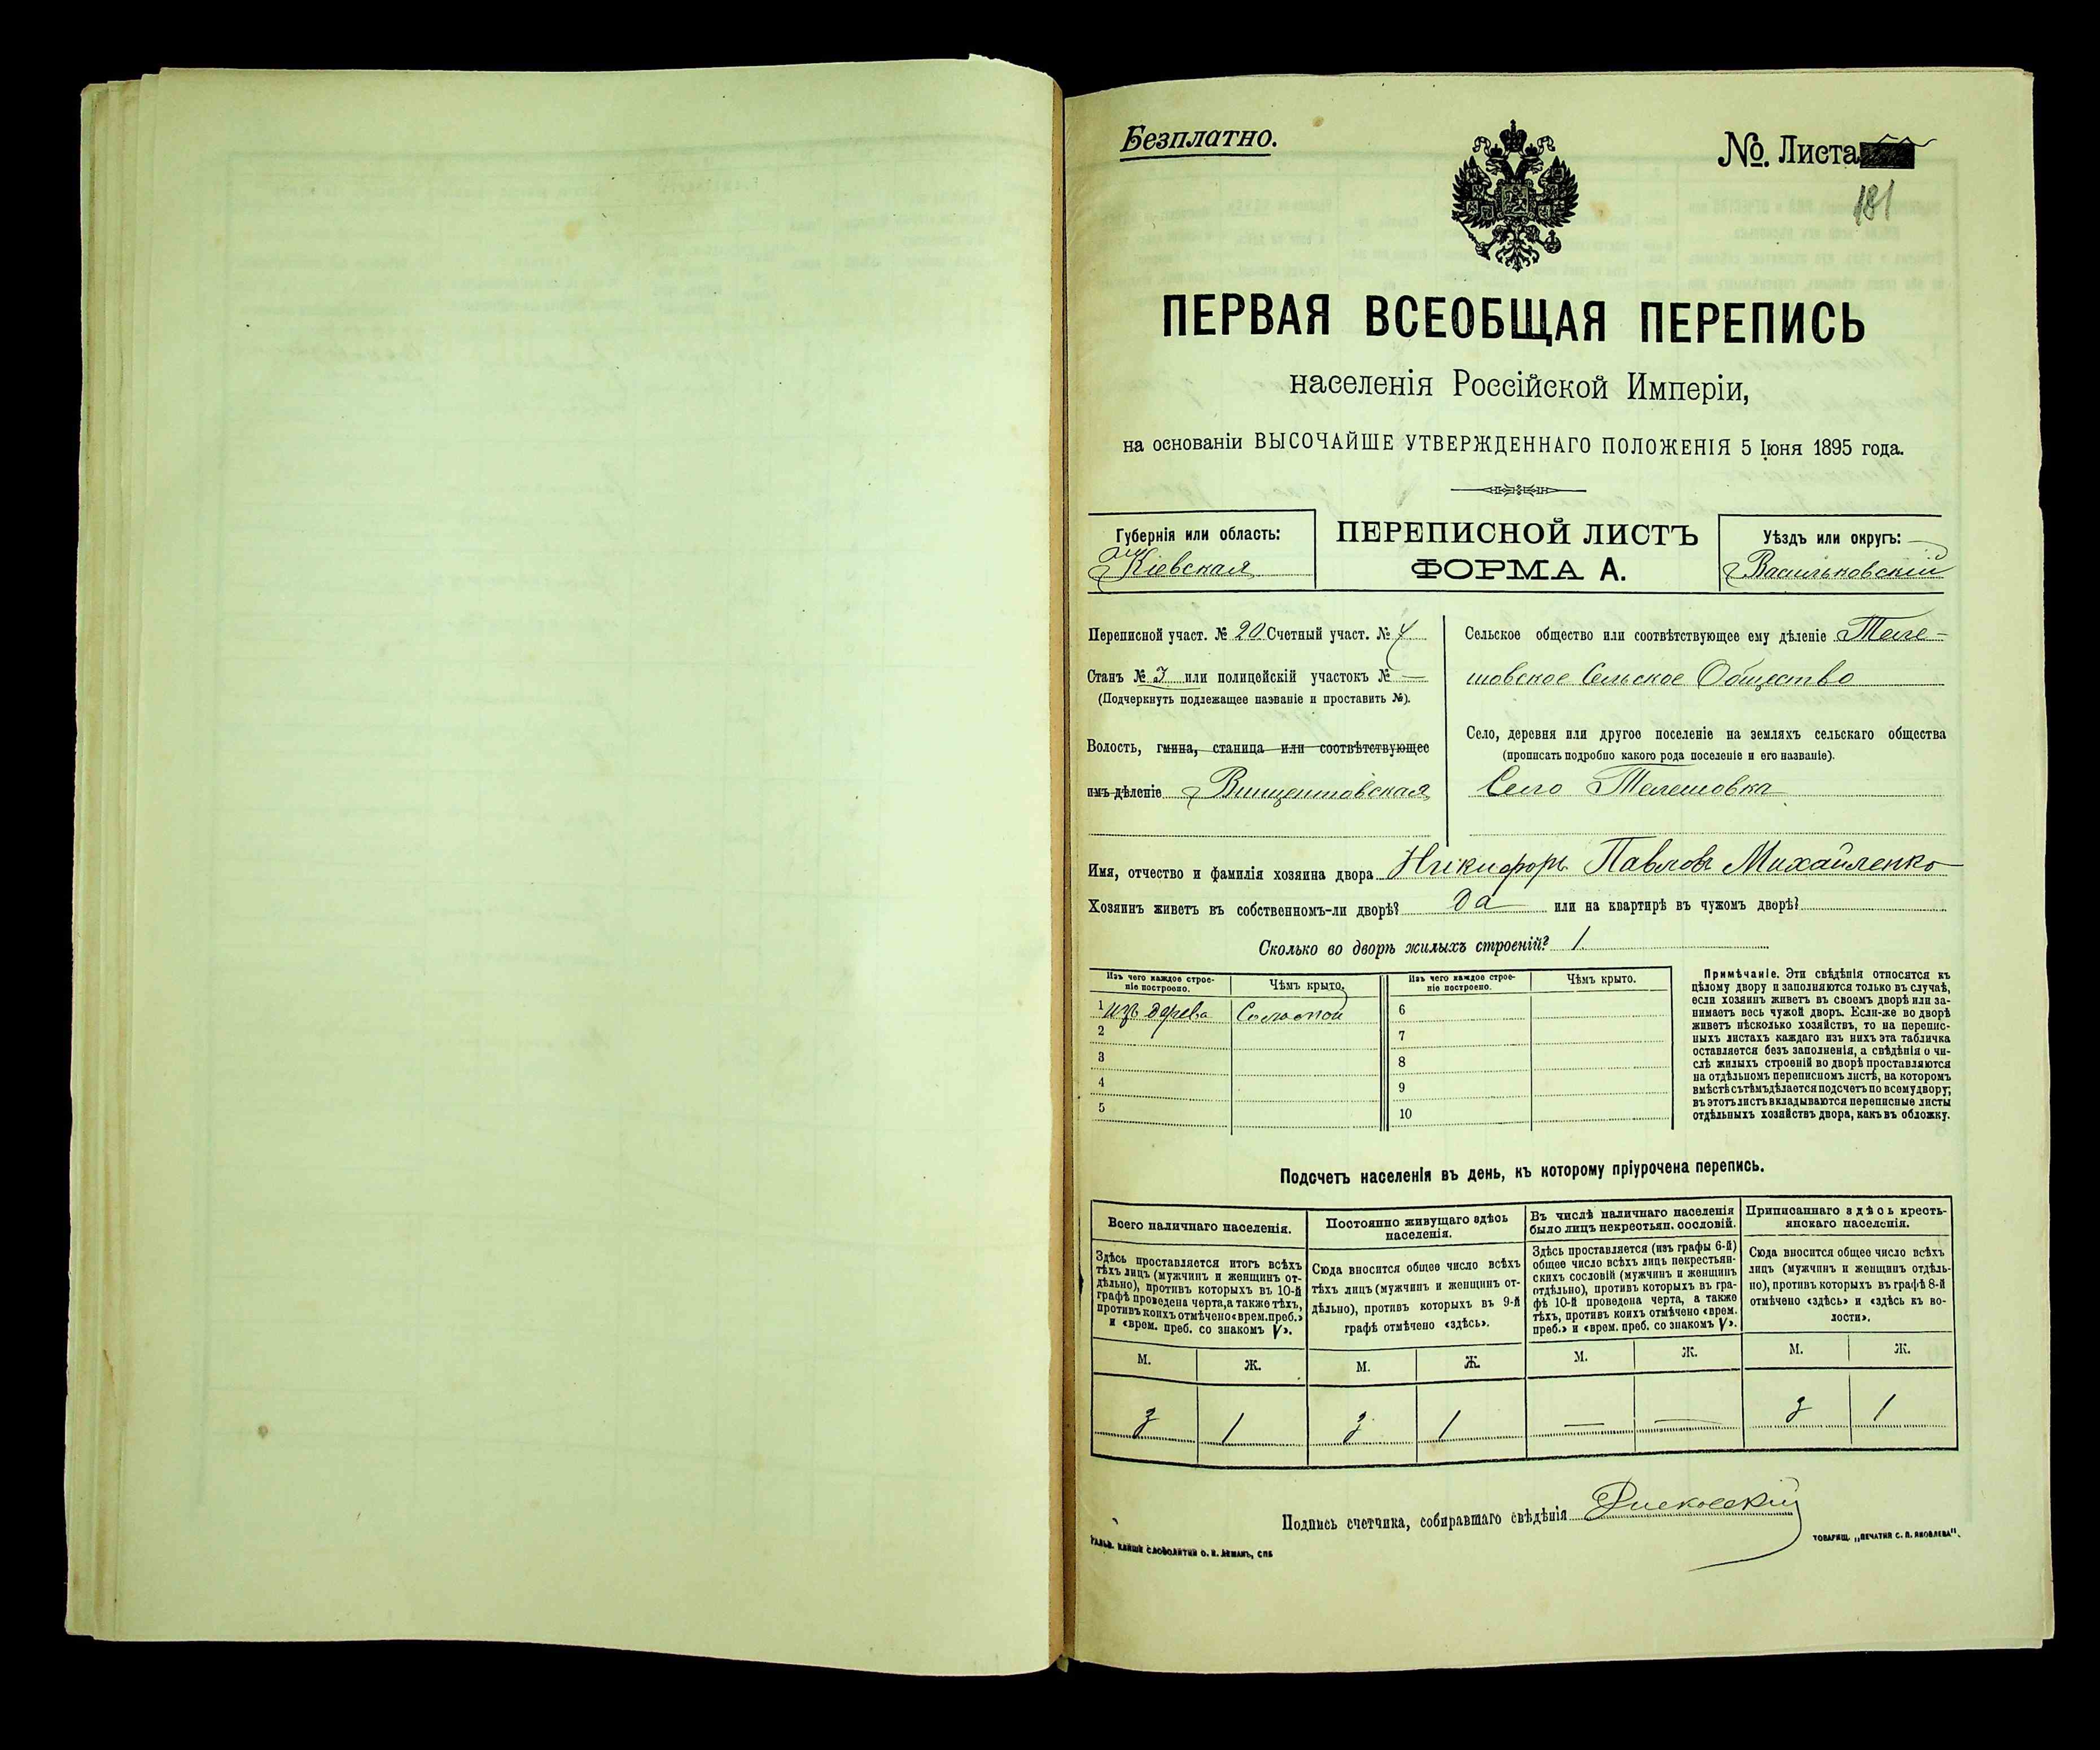 Безплатно.
№. Листа
181
ПЕРВАЯ ВСЕОБЩАЯ ПЕРЕПИСЬ
населенія Россійской Имперіи,
на основаніи ВЫСОЧАЙШЕ УТВЕРЖДЕННАГО ПОЛОЖЕНІЯ 5 Іюня 1895 года.
Губернія или область:
Кіевская
ПЕРЕПИСНОЙ ЛИСТЪ
ФОРМА А.
Уѣздъ или округъ:
Васильковскій
Переписной участ. № 20 Счетный участ. № 4
Станъ № 3 или полицейскій участокъ № —
(Подчеркнуть подлежащее названіе и проставить №).
Волость, гмина, станица или соотвѣтствующее
имъ дѣленіе Винцентовская
Сельское общество или соотвѣтствующее ему дѣленіе Теле-
шовское Сельское Общество
Село, деревня или другое поселеніе на земляхъ сельскаго общества
(прописать подробно какого рода поселеніе и его названіе).
Село Телешовка
Имя, отчество и фамилія хозяина двора Никифоръ Павловъ Михайленко
Хозяинъ живетъ въ собственномъ-ли дворѣ? да или на квартирѣ въ чужомъ дворѣ?
Сколько во дворѣ жилыхъ строеній? 1
Изъ чего каждое строе-
ніе построено.
Чѣмъ крыто.
Изъ чего каждое строе-
ніе построено.
Чѣмъ крыто.
1 изъ дерева Соломой
2
3
4
5
6
7
8
9
10
Примѣчаніе. Эти свѣдѣнія относятся къ
цѣлому двору и заполняются только въ случаѣ,
если хозяинъ живетъ въ своемъ дворѣ или за-
нимаетъ весь чужой дворъ. Если-же во дворѣ
живетъ нѣсколько хозяйствъ, то на перепис-
ныхъ листахъ каждаго изъ нихъ эта табличка
оставляется безъ заполненія, а свѣдѣнія о чи-
слѣ жилыхъ строеній во дворѣ проставляются
на отдѣльномъ переписномъ листѣ, на которомъ
вмѣстѣ съ тѣмъ дѣлается подсчетъ по всему двору;
въ этотъ листъ вкладываются переписные листы
отдѣльныхъ хозяйствъ двора, какъ въ обложку.
Подсчетъ населенія въ день, къ которому пріурочена перепись.
Всего наличнаго населенія.
Здѣсь проставляется итогъ всѣхъ
тѣхъ лицъ (мужчинъ и женщинъ от-
дѣльно), противъ которыхъ въ 10-й
графѣ проведена черта, а также тѣхъ,
противъ коихъ отмѣчено «врем. преб.»
и «врем. преб. со знакомъ V».
Постоянно живущаго здѣсь
населенія.
Сюда вносится общее число всѣхъ
тѣхъ лицъ (мужчинъ и женщинъ от-
дѣльно), противъ которыхъ въ 9-й
графѣ отмѣчено «здѣсь».
Въ числѣ наличнаго населенія
было лицъ некрестьян. сословій.
Здѣсь проставляется (изъ графы 6-й)
общее число всѣхъ лицъ некрестьян-
скихъ сословій (мужчинъ и женщинъ
отдѣльно), противъ которыхъ въ гра-
фѣ 10-й проведена черта, а также
тѣхъ, противъ коихъ отмѣчено «врем.
преб.» и «врем. преб. со знакомъ V».
Приписаннаго здѣсь кресть-
янскаго населенія.
Сюда вносится общее число всѣхъ
лицъ (мужчинъ и женщинъ отдѣль-
но), противъ которыхъ въ графѣ 8-й
отмѣчено «здѣсь» и «здѣсь въ во-
лости».
М. Ж. М. Ж. М. Ж. М. Ж.
3 1 3 1 — — 3 1
Подпись счетчика, собиравшаго свѣдѣнія
СЛОВОЛИТНИ О. И. ЛЕМАНЪ, СПБ
ТОВАРИЩ. „ПЕЧАТНЯ С. П. ЯКОВЛЕВА".